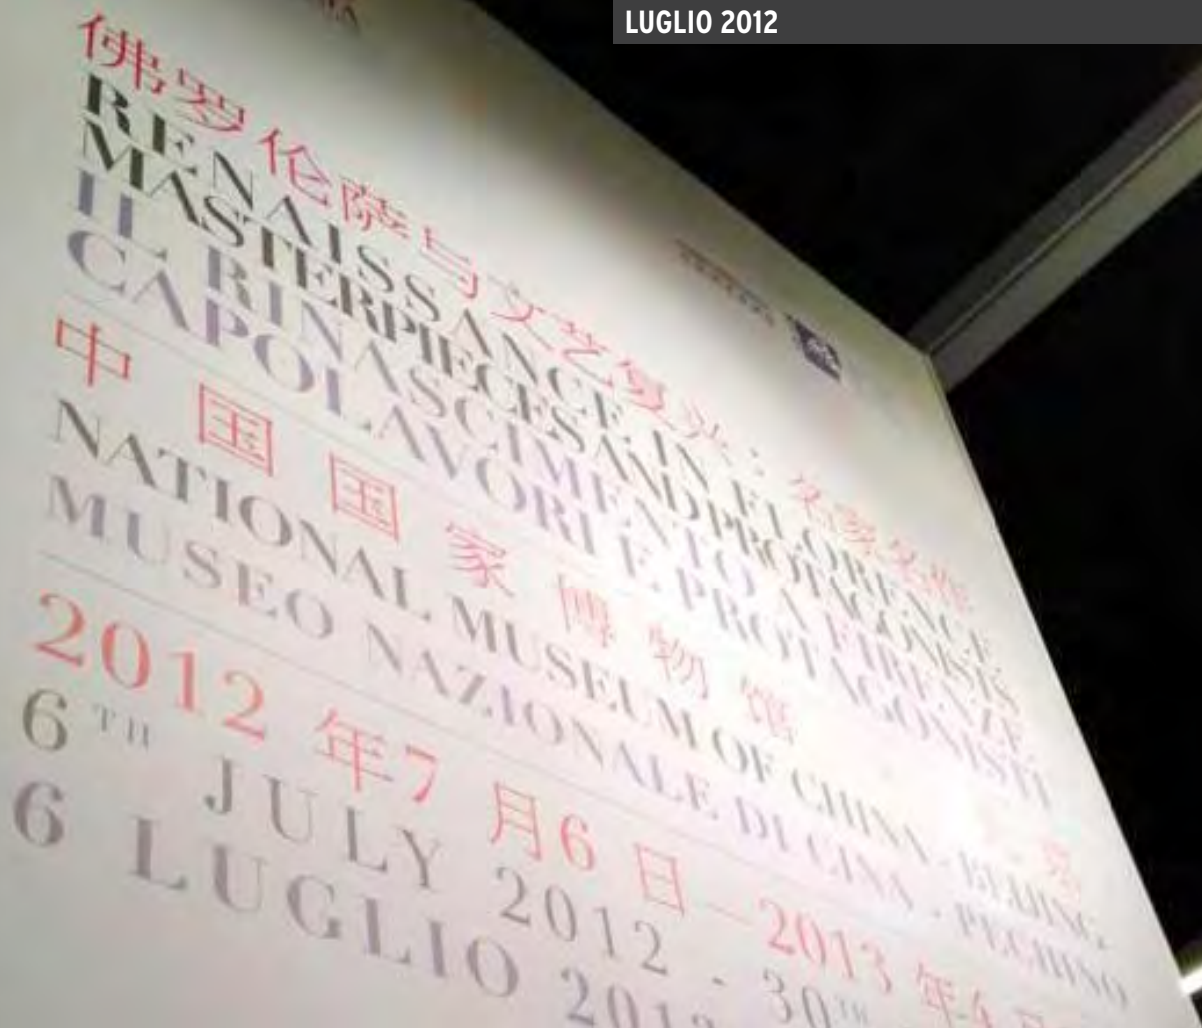 LUGLIO 2012
佛罗伦萨与文艺复兴：名家名作
RENAISSANCE IN FLORENCE.
MASTERPIECES AND PROTAGONISTS
IL RINASCIMENTO A FIRENZE.
CAPOLAVORI E PROTAGONISTI
中国国家博物馆
NATIONAL MUSEUM OF CHINA - BEIJING
MUSEO NAZIONALE DI CINA - PECHINO
2012 年7 月6 日—2013 年4
6TH JULY 2012 - 30TH
6 LUGLIO